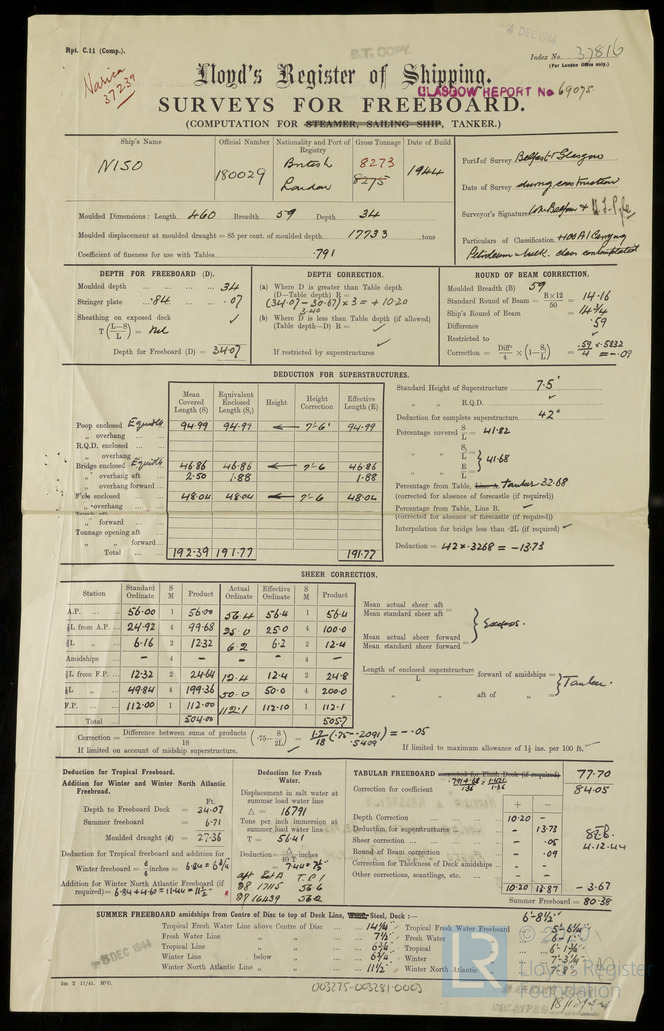 Rpt. C.11 (Comp.).
4 DEC 1944
B.T. COPY.
Index No. 37816
(For London Office only.)
Narica
37239
Lloyd's Register of Shipping.
GLASGOW REPORT No 69075
SURVEYS FOR FREEBOARD.
(COMPUTATION FOR STEAMER, SAILING SHIP, TANKER.)
Ship's Name Official Number Nationality and Port of Registry Gross Tonnage Date of Build
NISO 180029 British London 8273 8275 1944
Port of Survey Belfast & Glasgow
Date of Survey during construction
Surveyor's Signature
Particulars of Classification +100A1 Carrying
Petroleum in bulk class contemplated
Moulded Dimensions: Length 460 Breadth 59 Depth 34
Moulded displacement at moulded draught = 85 per cent. of moulded depth 17733 tons
Coefficient of fineness for use with Tables .791
DEPTH FOR FREEBOARD (D).
Moulded depth 34
Stringer plate .84 .07
Sheathing on exposed deck
T(L-S/L) = nil
Depth for Freeboard (D) = 34.07
DEPTH CORRECTION.
(a) Where D is greater than Table depth
(D—Table depth) R =
(34.07 - 30.67) x 3 = + 10.20
3.40
(b) Where D is less than Table depth (if allowed)
(Table depth—D) R =
If restricted by superstructures
ROUND OF BEAM CORRECTION.
Moulded Breadth (B) 59
Standard Round of Beam = B×12/50 = 14.16
Ship's Round of Beam = 14 3/4
Difference .59
Restricted to
Correction = Diff./4 × (1—S₁/L) = .59 x .5832/4 = -.09
DEDUCTION FOR SUPERSTRUCTURES.
Mean Covered Length (S) Equivalent Enclosed Length (S₁) Height Height Correction Effective Length (E)
Poop enclosed Equivt. 94.99 94.99 ← 7'-6" 94.99
„ overhang
R.Q.D. enclosed
„ overhang
Bridge enclosed Equivt. 46.86 46.86 ← 7'-6 46.86
„ overhang aft 2.50 1.88 1.88
„ overhang forward
F'cle enclosed 48.04 48.04 ← 7'-6 48.04
„ overhang
Trunk aft
„ forward
Tonnage opening aft
„ „ forward
Total 192.39 191.77 191.77
Standard Height of Superstructure 7.5'
„ „ R.Q.D.
Deduction for complete superstructure 42"
Percentage covered S/L = 41.82
„ „ S₁/L =
„ „ E/L = } 41.68
Percentage from Table, Tanker 32.68
(corrected for absence of forecastle (if required))
Percentage from Table, Line B.
(corrected for absence of forecastle (if required))
Interpolation for bridge less than ·2L (if required)
Deduction = 42 x .3268 = -13.73
SHEER CORRECTION.
Station Standard Ordinate S M Product Actual Ordinate Effective Ordinate S M Product
A.P. 56.00 1 56.00 56.4 56.4 1 56.4
⅙L from A.P. 24.92 4 99.68 25.0 25.0 4 100.0
⅓L „ 6.16 2 12.32 6.2 6.2 2 12.4
Amidships - 4 - - - 4 -
⅓L from F.P. 12.32 2 24.64 12.4 12.4 2 24.8
⅙L „ 49.84 4 199.36 50.0 50.0 4 200.0
F.P. 112.00 1 112.00 112.1 112.10 1 112.1
Total 504.00 505.7
Mean actual sheer aft
Mean standard sheer aft =
Mean actual sheer forward
Mean standard sheer forward =
} Excess.
Length of enclosed superstructure
L
forward of amidships =
„ „ aft of „ =
} Tanker.
Correction = Difference between sums of products/18 (·75—S/2L) = 1.7/18 (.75 - .2091) = - .05
.5409
If limited on account of midship superstructure.
If limited to maximum allowance of 1½ ins. per 100 ft.
Deduction for Tropical Freeboard.
Addition for Winter and Winter North Atlantic Freeboard.
Ft.
Depth to Freeboard Deck = 34.07
Summer freeboard = 6.71
Moulded draught (d) = 27.36
Deduction for Tropical freeboard and addition for
Winter freeboard = d/4 inches = 6.84 = 6 3/4
Addition for Winter North Atlantic Freeboard (if
required) = 6.84 + 4.60 = 11.44 = 11½
Deduction for Fresh Water.
Displacement in salt water at
summer load water line
Δ = 16791
Tons per inch immersion at
summer load water line
T = 56.41
Deduction = Δ/40 T inches
= 7.44 = 7½
T.P.I
28 17115 56.6
27 16439 56.2
TABULAR FREEBOARD corrected for Flush Deck (if required) 77.70
Correction for coefficient .791 + .68/1.36 = 1.471/1.36 84.05
+ -
Depth Correction 10.20 -
Deduction for superstructures - 13.73
Sheer correction - .05
Round of Beam correction - .09
Correction for Thickness of Deck amidships - -
Other corrections, scantlings, etc. - -
10.20 13.87 - 3.67
Summer Freeboard = 80.38
4.12.44
SUMMER FREEBOARD amidships from Centre of Disc to top of Deck Line, Steel, Deck:— 6'-8½"
Tropical Fresh Water Line above Centre of Disc 14¼" Tropical Fresh Water Freeboard 5'-6¼"
Fresh Water Line „ „ 7½" Fresh Water „ 6'-1"
Tropical Line „ „ 6¾" Tropical „ 6'-1¾"
Winter Line below „ 6¾" Winter „ 7'-3¼"
Winter North Atlantic Line „ „ 11½" Winter North Atlantic „ 7'-8"
5 DEC 1944
2m T 11/41. MᶜC.
003275-003281-0003
LR
© 2020
Lloyd's Register
Foundation